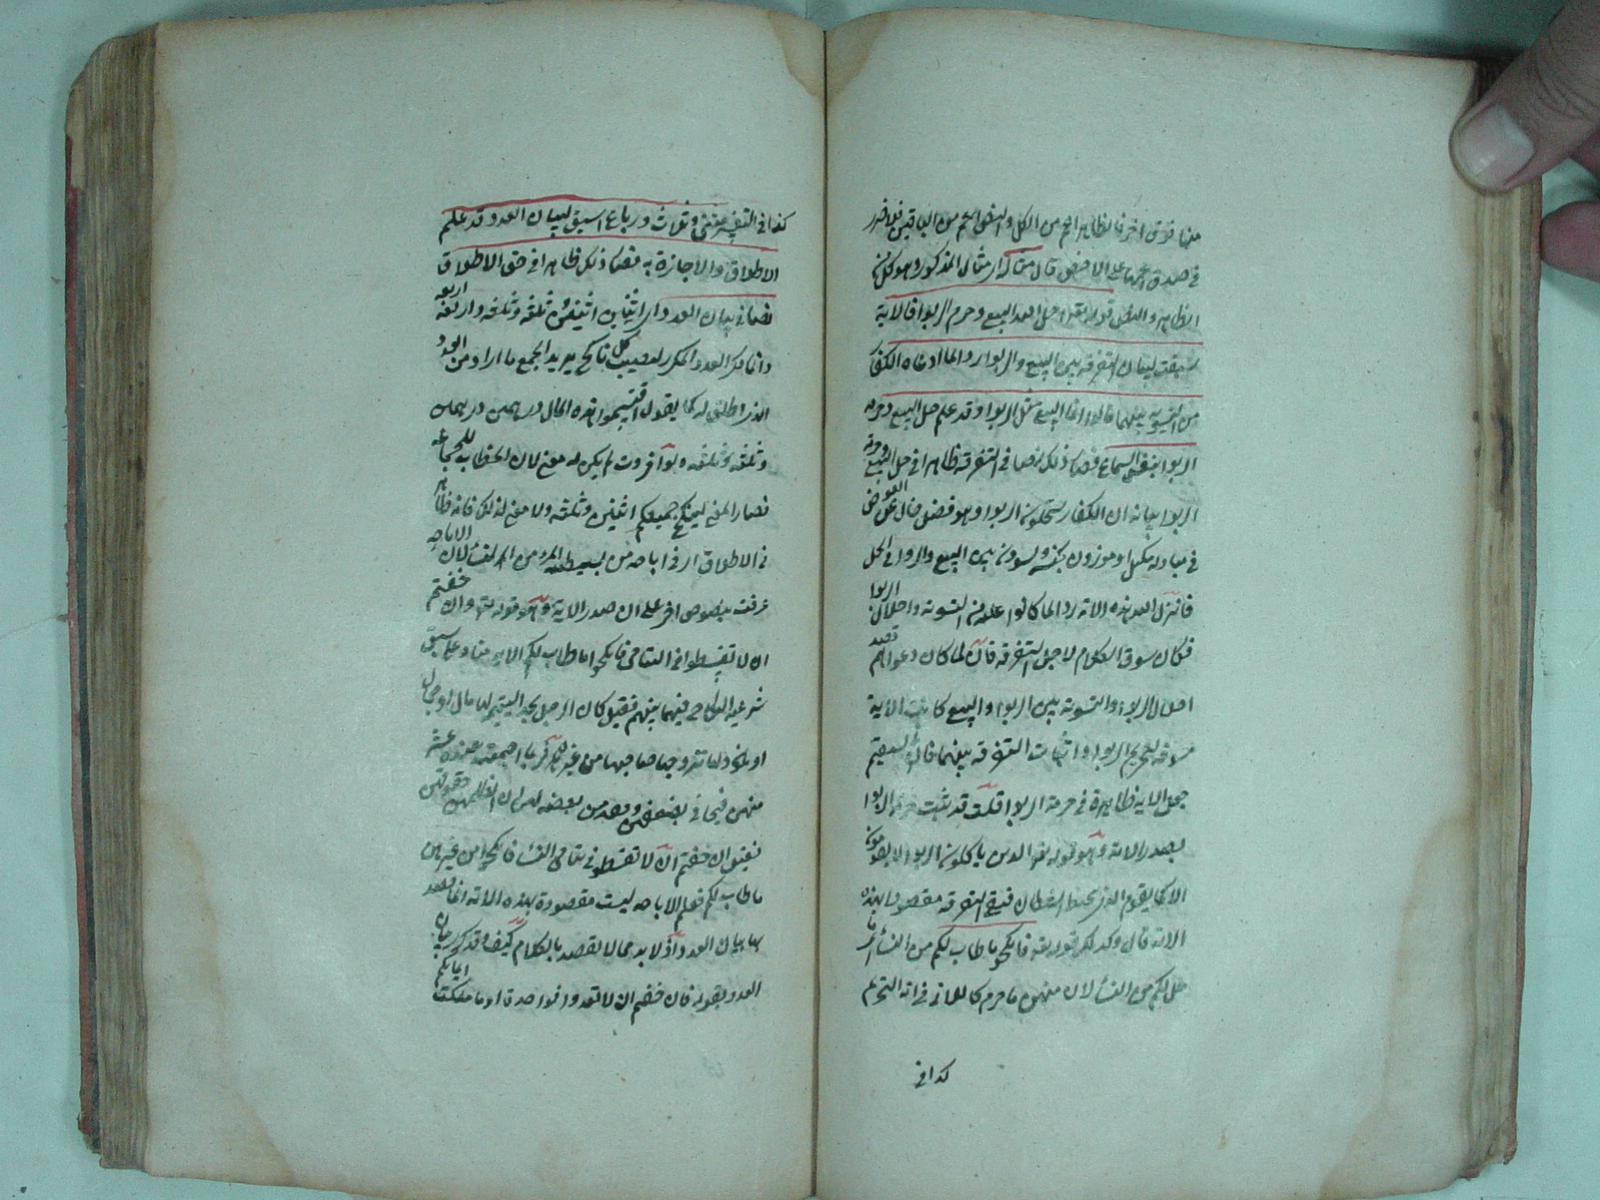 منها فوق اخر فالظاهر اعم من الكل والنص اعم من الباقين فلا ضرر
في صدق اعمها على الاخص قال مثال المذكور وهو كل من
الظاهر والنص قوله تعالى احل الله البيع وحرم الربوا فالاية
سيقت لبيان التفرقة بين البيع والربوا رد الما ادعاه الكفار
من التسوية بينهما قالوا انما البيع مثل الربوا وقد علم حل البيع وحرمة
الربوا بنفس السماع فصار ذلك نصا في التفرقة ظاهرا في حل البيع وحرمة
الربوا بيانه ان الكفار يستحلون الربوا وهو فضل خال عن العوض
في مبادلة مكيل او موزون بجنسه ويسوون بين البيع والربوا في الحل
فانزل الله هذه الاية رد الما كانوا عليه من التسوية واحلال الربوا
فكان سوق الكلام لاجل التفرقة فان لما كان دعواهم قصد
احلال الربوا والتسوية بين الربوا والبيع كانت الاية
مسوقة لتحريم الربوا واثبات التفرقة بينهما فان يستقيم
جعل الاية ظاهرة في حرمة الربوا قلت قد ثبت حرمة الربوا
بصدر الاية وهو قوله تعالى الذين ياكلون الربوا لا يقومون
الا كما يقوم الذي يتخبطه الشيطان فبقي التفرقة مقصودا بهذه
الاية قال وكذلك قوله تعالى فانكحوا ما طاب لكم من النساء اي ما
حل لكم من النساء لان منهن ما حرم كاللاتي في اية التحريم
كذا في
كذا في التفسير مثنى وثلاث ورباع سيق لبيان العدد وقد علم
الاطلاق والاجازة به فصار ذلك ظاهرا في حق الاطلاق
نصا في بيان العدد اي اثنين اثنين وثلثة وثلثة واربعة اربعة
وانما كرر العدد المكرر ليصيب كل ناكح يريد الجمع ما اراد من العدد
الذي اطلق له كما يقول اقتسموا هذه المال درهمين درهمين
وثلثة وثلثة ولو افردت لم يكن له معنى لان الخطاب للجماعة
فصار المعنى لينكح جميعكم اثنين وثلثة ولا معنى لذلك فانه ظاهر
في الاطلاق اي في اباحة من النساء لان الاباحة
عرفت بنصوص اخر على ان صدر الاية وهو قوله تعالى وان خفتم
ان لا تقسطوا في اليتامى فانكحوا ما طاب لكم الاية مناد على سبق
شرعية النكاح فيما بينهم فقيل كان الرجل يجد اليتيمة لها مال او جمال
منهن فيخاف
فقيل ان خفتم ان لا تقسطوا في يتامى النساء فانكحوا من غيرهن
ما طاب لكم فعلم الاباحة ليست مقصودة بهذه الاية انما قصد
بها بيان العدد اذ لا بد مما لا يقصد بالكلام كيف وقد ذكر بيان
العدد بقوله فان خفتم ان لا تعدلوا فواحدة او ما ملكت ايمانكم